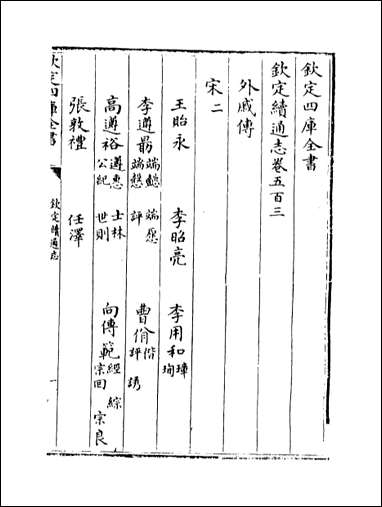 欽定四庫全書
欽定續通志卷五百三
外戚傳
宋二
王貽永 李昭亮 李用和 璋 珣
李遵勗 端懿 端愿 端慤 評 曹佾 偕 評 誘
高遵裕 遵惠 士林 公紀 世則 向傳範 經 綜 宗回 宗良
張敦禮 任澤
欽定四庫全書 欽定續通志 一